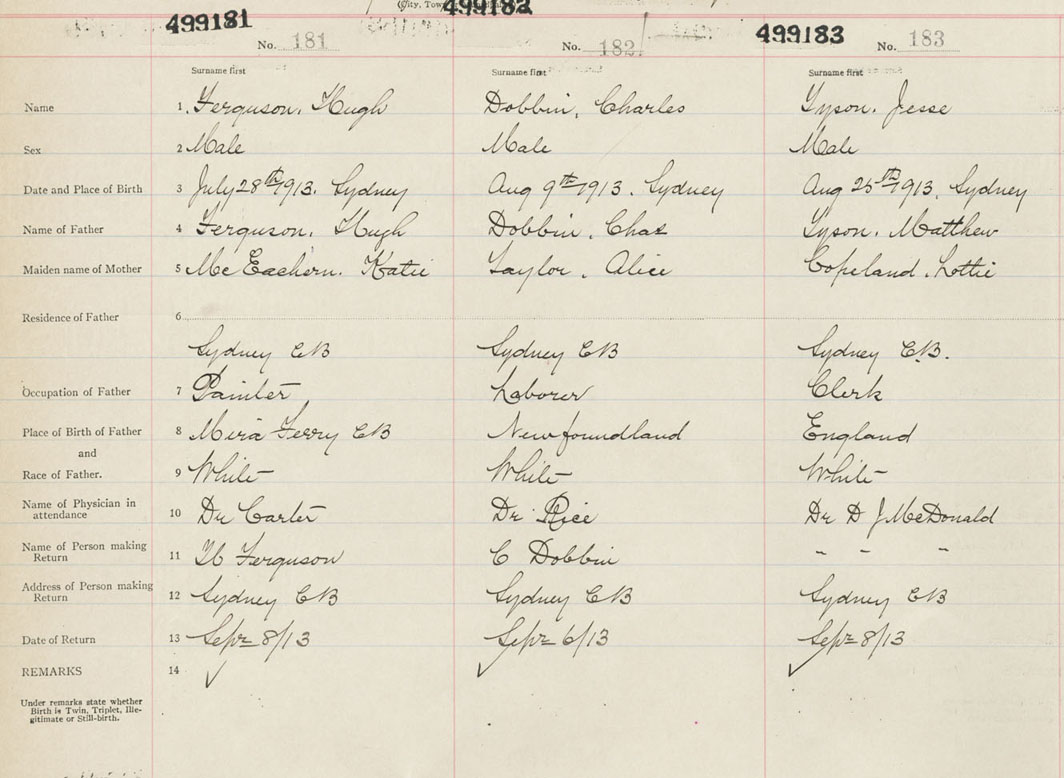 (City, Tow
499181 499182 499183
No. 181 No. 182 No. 183
Surname first Surname first Surname first
Name 1. Ferguson, Hugh Dobbin, Charles Tyson, Jesse
Sex 2 Male Male Male
Date and Place of Birth 3 July 28th 1913. Sydney Aug 9th 1913. Sydney Aug 25th 1913. Sydney
Name of Father 4 Ferguson, Hugh Dobbin, Chas Tyson. Matthew
Maiden name of Mother 5 McEachern. Katie Taylor, Alice Copeland, Lottie
Residence of Father 6
Sydney CB Sydney CB Sydney C.B.
Occupation of Father 7 Painter Laborer Clerk
Place of Birth of Father 8 Mira Ferry CB Newfoundland England
and
Race of Father. 9 White White White
Name of Physician in
attendance 10 Dr Carter Dr Rice Dr D J McDonald
Name of Person making
Return 11 H Ferguson C Dobbin " " "
Address of Person making
Return 12 Sydney CB Sydney CB Sydney CB
Date of Return 13 Sept 8/13 Sept 6/13 Sept 8/13
REMARKS 14 ✓ ✓ ✓
Under remarks state whether
Birth is Twin, Triplet, Ille-
gitimate or Still-birth.